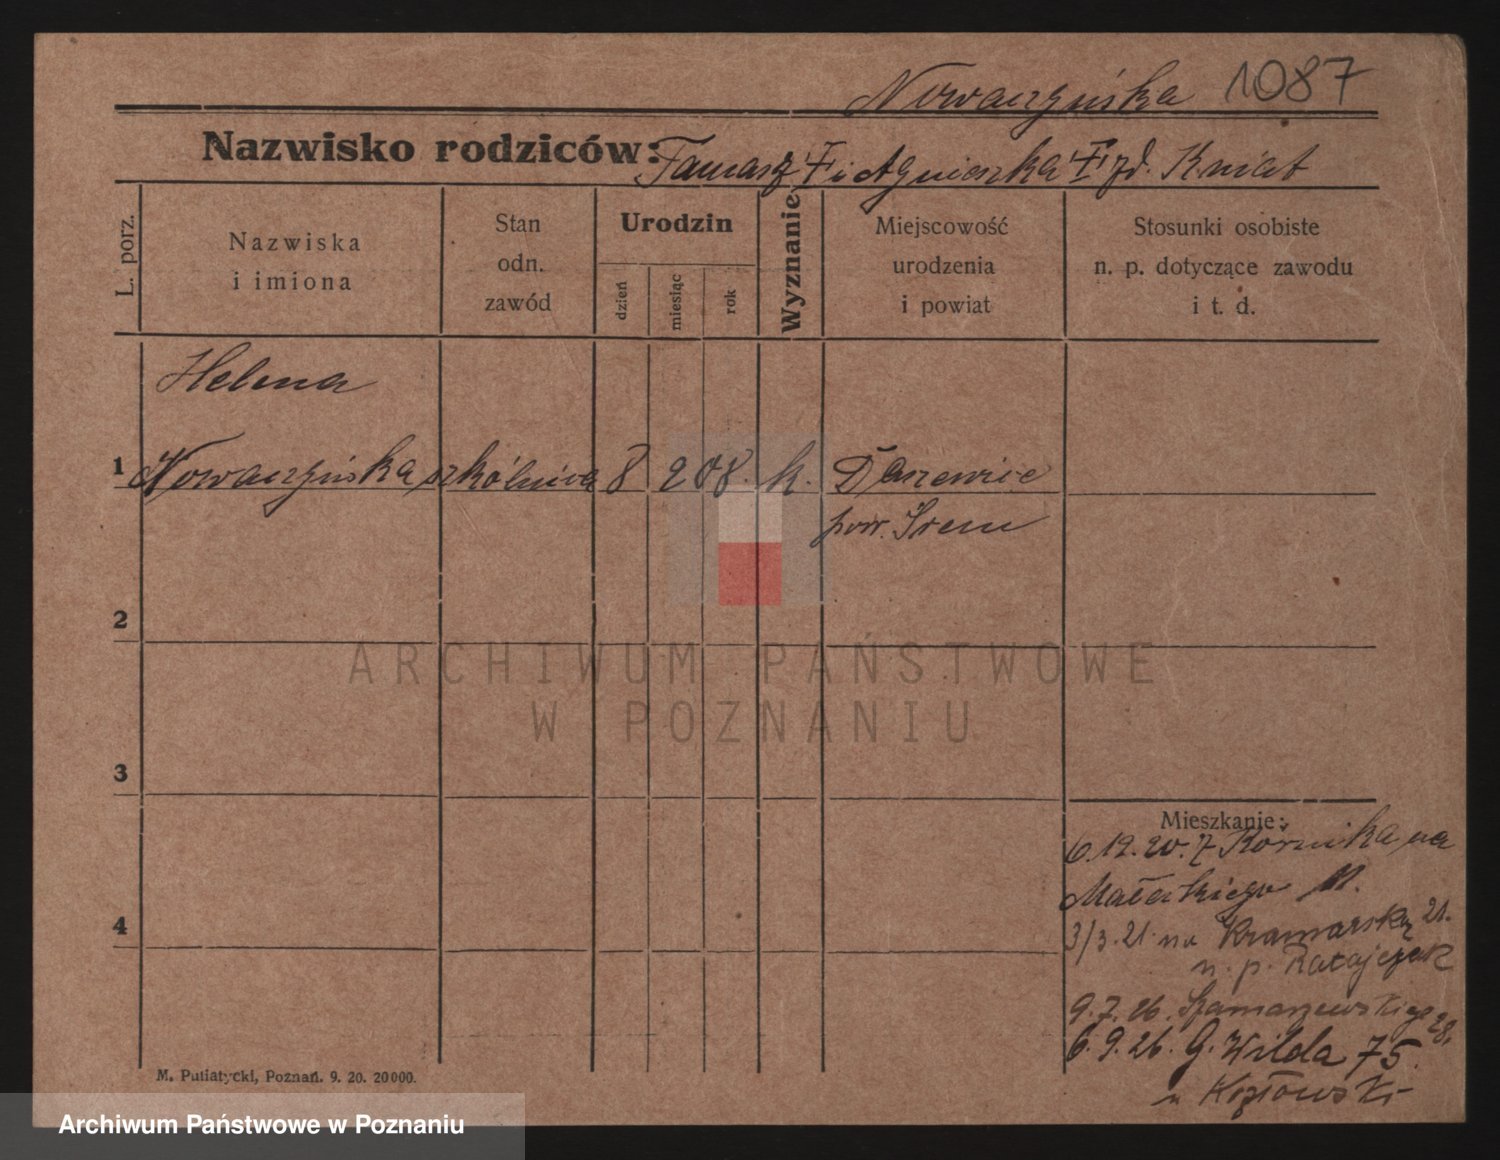 Nowaczyńska 1087
Nazwisko rodziców: Tomasz i Agnieszka zd. Kmiat
L. porz.
Nazwiska i imiona
Stan odn. zawód
Urodzin
dzień
miesiąc
rok
Wyznanie
Miejscowość urodzenia i powiat
Stosunki osobiste n. p. dotyczące zawodu i t. d.
Helena
1 Nowaczyńska szkólniva 8 2 08. k. Daszewice
pow. Śrem
2
3
4
ARCHIWUM PAŃSTWOWE
W POZNANIU
Mieszkanie:
6.12.20. z Kórnika na
Małeckiego 11.
3/3.21. na Kramarską 21.
n. p. Ratajczak
9.7.26. Szamarzewskiego 28.
6.9.26. G. Wilda 75.
u Kozłowski
M. Putiatycki, Poznań. 9. 20. 20000.
Archiwum Państwowe w Poznaniu